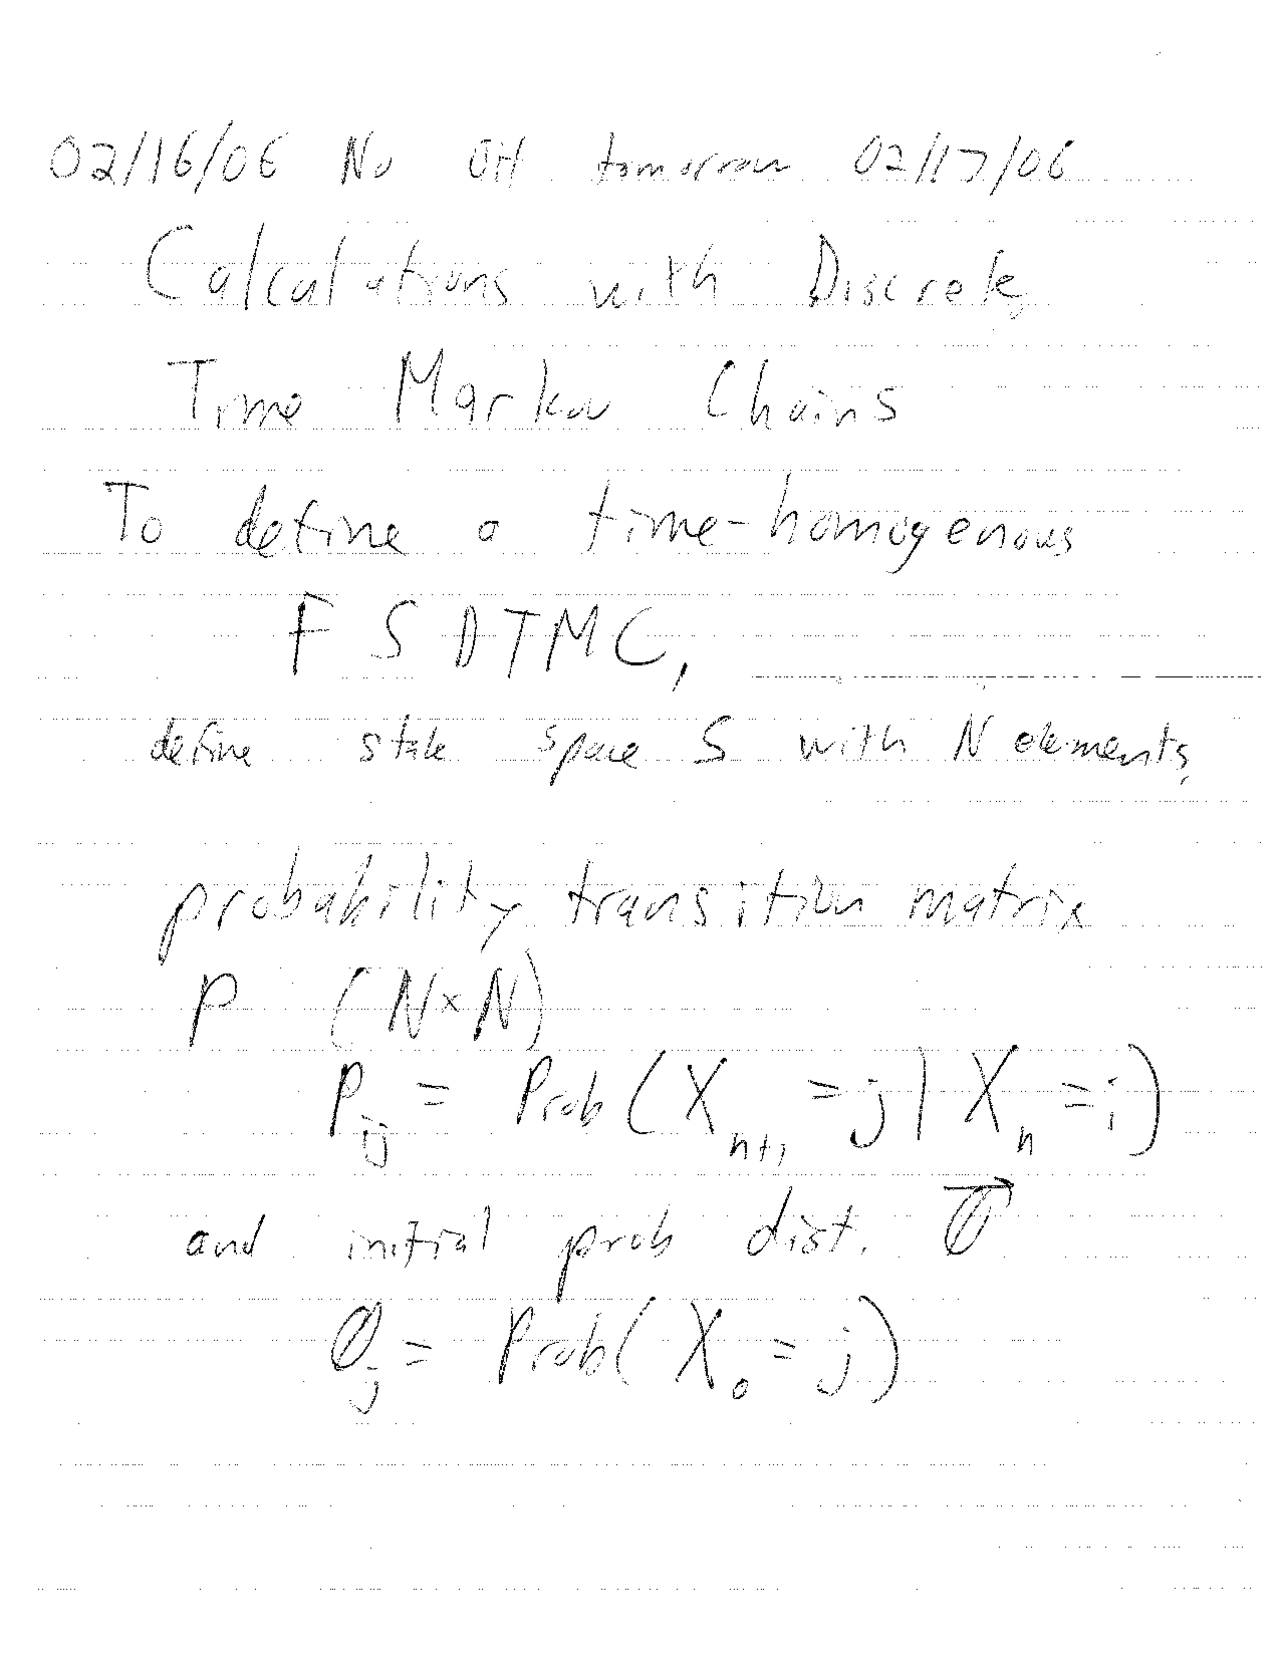 02/16/06 No OH tomorrow 02/17/06
Calculations with Discrete
Time Markov Chains
To define a time-homogenous
FSDTMC,
define state space S with N elements,
probability transition matrix
P (N×N)
P_ij = Prob(X_n+1 = j | X_n = i)
and initial prob dist. \vec{φ}
φ_j = Prob(X_0 = j)